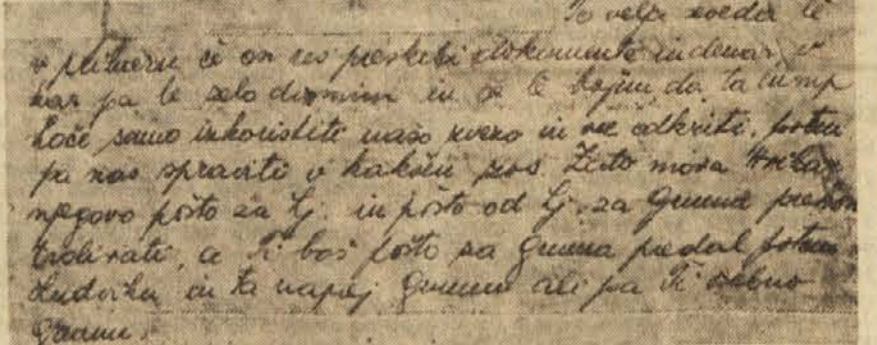 To velja seveda le
v primeru če on res preskrbi dokumente in denar, v
kar pa le zelo dvomim in se le bojim da ta lump
hoče samo izkoristiti našo zvezo in vse odkriti, potem
pa nas spraviti v kakšen zos. Zato mora
njegovo pošto za Lj. in pošto od Lj. za Gruma prekon
trolirati, a Ti boš pošto za Gruma predal potem
Ludviku in ta naprej Grumu ali pa Ti osebno
Grumu.